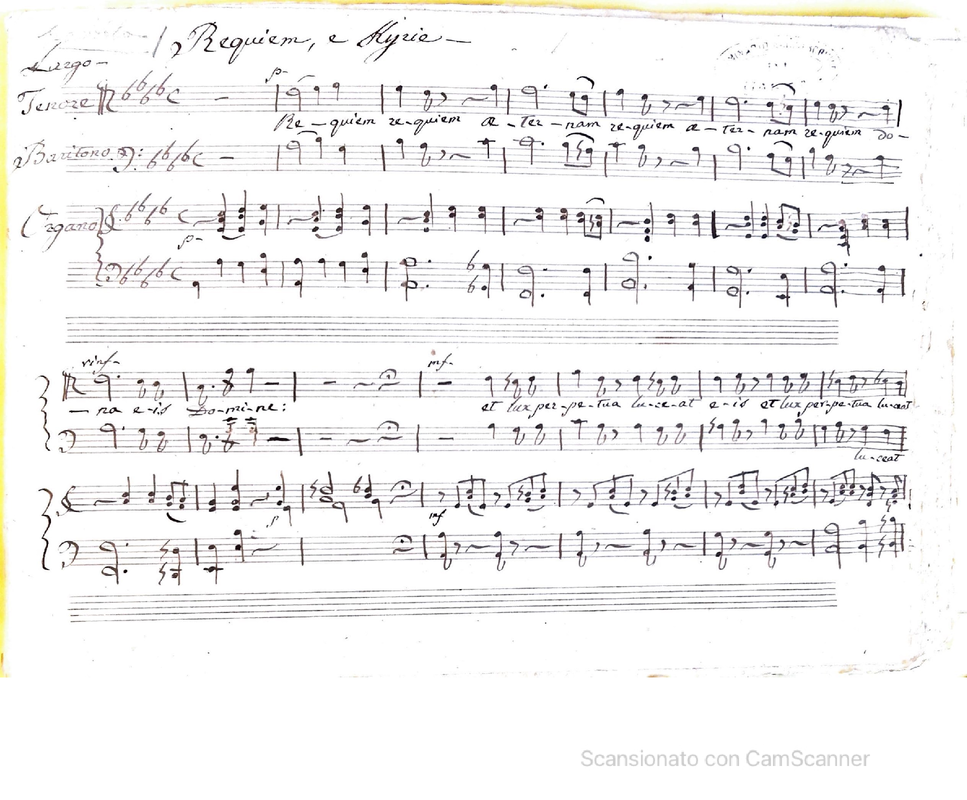 Requiem, e Kyrie
Largo
p
Tenore
Re - quiem re-quiem æ - ter - nam re-quiem æ - ter - nam re-quiem do -
Baritono
Organo
p
rinf mf
- na e-is Do-mi-ne: et lux per-pe-tua lu-ce-at e-is et lux per-pe-tua lu-ceat
lu-ceat
p mf
Scansionato con CamScanner